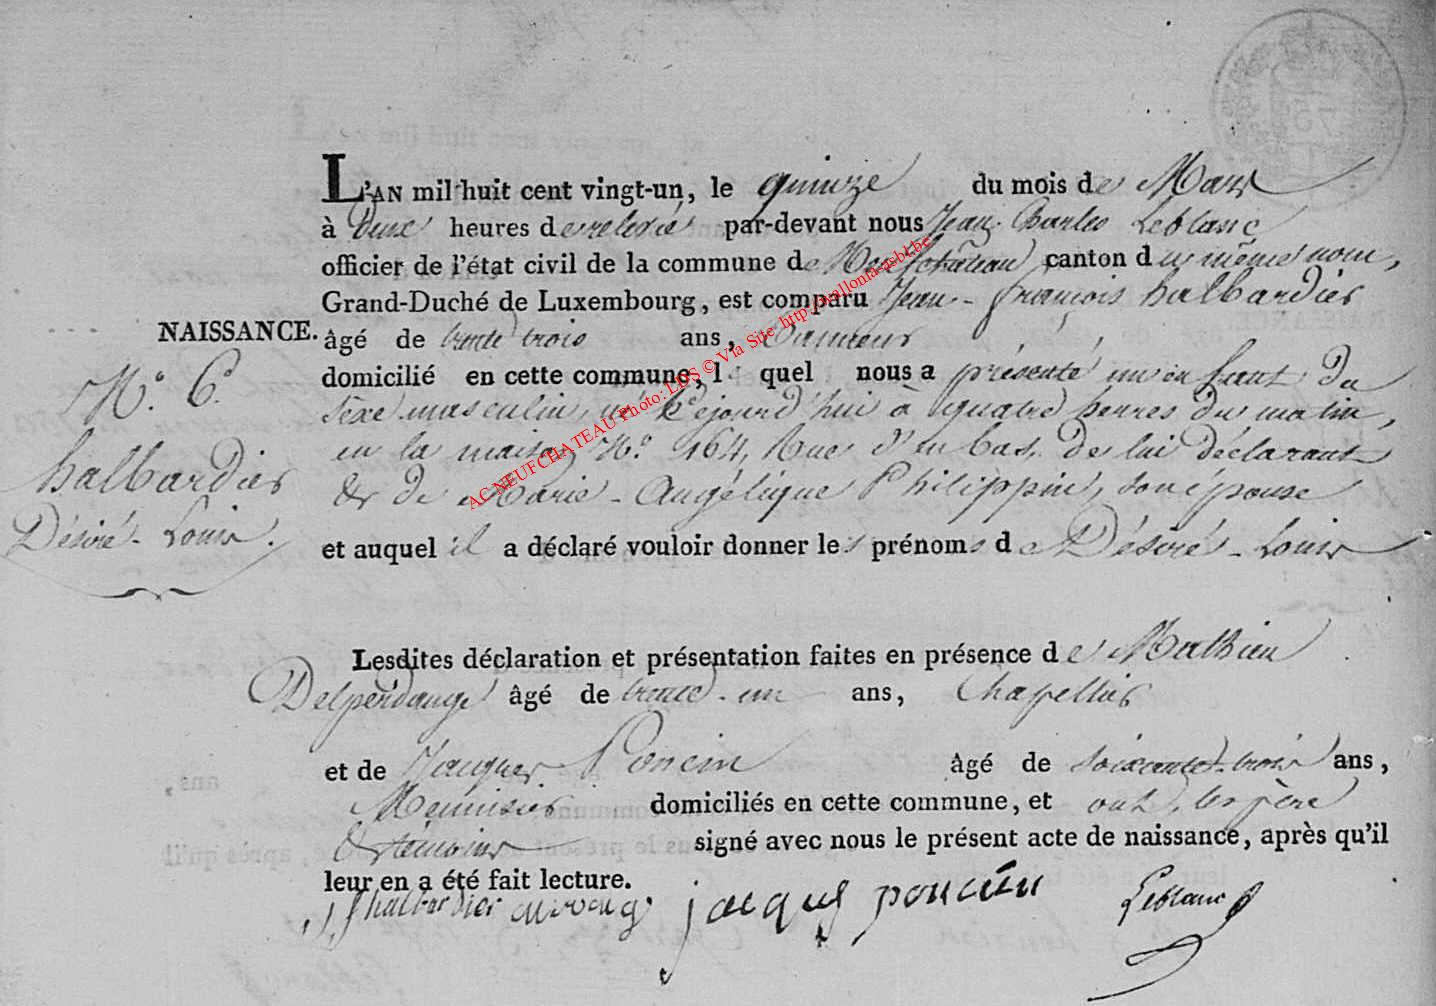 L'AN mil huit cent vingt-un, le quinze du mois de Mars
à deux heures de relevée par-devant nous Jean Charles Leblanc
officier de l'état civil de la commune de Neufchâteau canton du même nom,
Grand-Duché de Luxembourg, est comparu Jean-françois halbardier
NAISSANCE. âgé de trente trois ans, Tanneur
domicilié en cette commune, lequel nous a présenté un enfant du
N.o 6. sexe masculin, né cejourd'hui à quatre heures du matin,
en la maison N.o 164, Rue d'en bas, de lui déclarant
halbardier & de Marie-Angélique Philippin, son épouse
Désiré-Louis. et auquel il a déclaré vouloir donner les prénoms de Désiré-Louis
Lesdites déclaration et présentation faites en présence de Mathieu
Delperdange âgé de trente-un ans, Chapellier
et de Jacques Poncin âgé de soixante-trois ans,
Menuisier domiciliés en cette commune, et ont, les père
& témoins signé avec nous le présent acte de naissance, après qu'il
leur en a été fait lecture.
halbardier jacques poncin Leblanc
AC NEUFCHATEAU Photo: LDS © Via Site http://wallonia-asbl.be